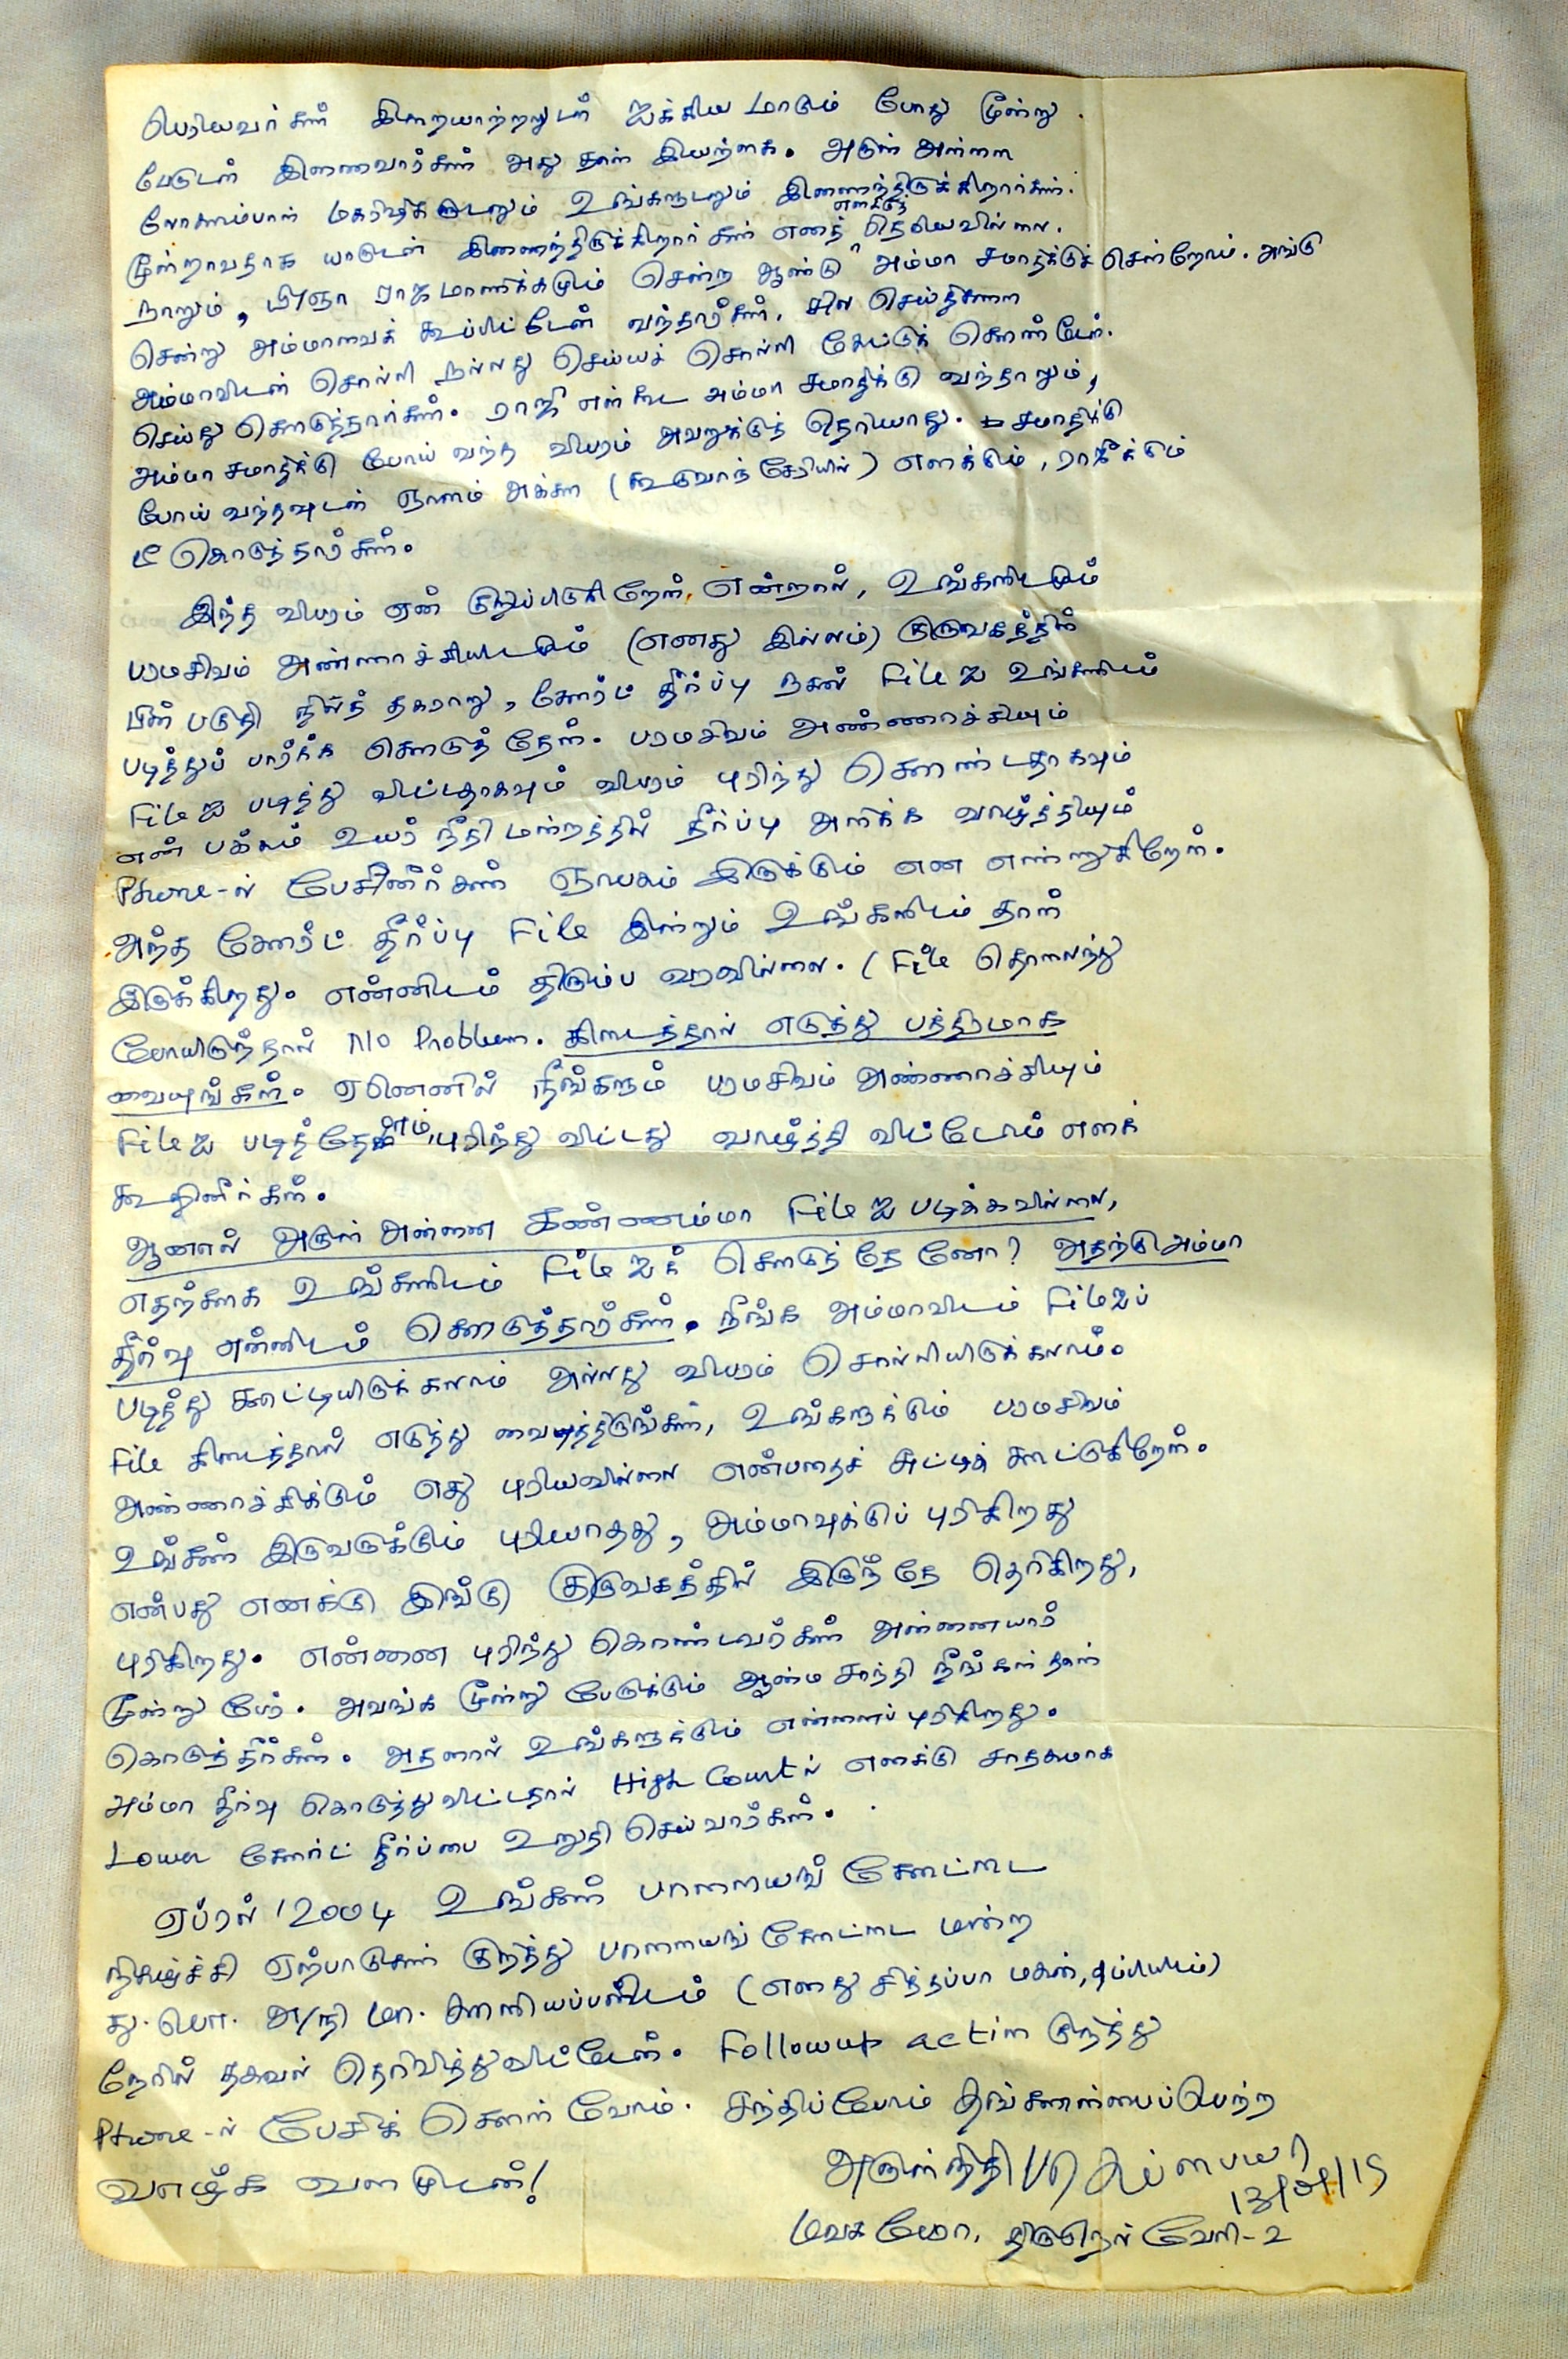 பெரியவர்கள் இறையாற்றலுடன் ஐக்கியமாகும் போது மூன்று
பேருடன் இணைவார்கள் அது தான் இயற்கை. அருள் அன்னை
லோகாம்பாள் மகரிஷிகளுடனும் உங்களுடனும் இணைந்திருக்கிறார்கள்.
மூன்றாவதாக யாருடன் இணைந்திருக்கிறார்கள் எனத் எனக்குத் தெரியவில்லை.
நானும், ராஜமாணிக்கமும் சென்ற ஆண்டு அம்மா சமாதிக்குச் சென்றோம். அங்கு
சென்று அம்மாவைக் கூப்பிட்டேன் வந்தார்கள். சில செய்திகளை
அம்மாவிடன் சொல்லி நல்லது செய்யச் சொல்லி கேட்டுக் கொண்டேன்.
செய்து கொடுத்தார்கள். ராஜி என்கூட அம்மா சமாதிக்கு வந்தாலும்,
அம்மா சமாதிக்கு போய் வந்த விபரம் அவனுக்குத் தெரியாது. சமாதிக்கு
போய் வந்தவுடன் ஞானம் அக்கா (கூடுவாஞ்சேரியில்) எனக்கும், ராஜிக்கும்
டீ கொடுத்தார்கள்.
இந்த விபரம் ஏன் குறிப்பிடுகிறேன் என்றால், உங்களிடமும்
பரமசிவம் அண்ணாச்சியிடமும் (எனது இல்லம்) குருவகத்தில்
பின் பகுதி நிலத் தகராறு, கோர்ட் தீர்ப்பு நகல் File ஐ உங்களிடம்
படித்துப் பார்க்க கொடுத்தேன். பரமசிவம் அண்ணாச்சியும்
File ஐ படித்து விட்டதாகவும் விபரம் புரிந்து கொண்டதாகவும்
என் பக்கம் உயர் நீதிமன்றத்தில் தீர்ப்பு அளிக்க வாழ்த்தியும்
Phone-ல் பேசினீர்கள் ஞாபகம் இருக்கும் என எண்ணுகிறேன்.
அந்த கோர்ட் தீர்ப்பு File இன்றும் உங்களிடம் தான்
இருக்கிறது. என்னிடம் திரும்ப வரவில்லை. (File தொலைந்து
போயிருந்தால் No Problem. கிடைத்தால் எடுத்து பத்திரமாக
வையுங்கள். ஏனெனில் நீங்களும் பரமசிவம் அண்ணாச்சியும்
File ஐ படித்தோம், புரிந்து விட்டது வாழ்த்தி விட்டோம் எனக்
கூறினீர்கள்.
ஆனால் அருள் அன்னை கண்ணம்மா File ஐ படிக்கவில்லை,
எதற்காக உங்களிடம் File ஐக் கொடுத்தேனோ? அதற்கு அம்மா
தீர்வு என்னிடம் கொடுத்தார்கள். நீங்க அம்மாவிடம் File ஐப்
படித்து காட்டியிருக்கலாம் அல்லது விபரம் சொல்லியிருக்கலாம்.
File கிடைத்தால் எடுத்து வைத்திருங்கள், உங்களுக்கும் பரமசிவம்
அண்ணாச்சிக்கும் எது புரியவில்லை என்பதைச் சுட்டிக் காட்டுகிறேன்.
உங்கள் இருவருக்கும் புரியாதது, அம்மாவுக்குப் புரிகிறது
என்பது எனக்கு இங்கு குருவகத்தில் இருந்தே தெரிகிறது,
புரிகிறது. என்னை புரிந்து கொண்டவர்கள் அன்னையார்
மூன்று பேர். அவங்க மூன்று பேருக்கும் ஆன்ம சாந்தி நீங்கள் தான்
கொடுத்தீர்கள். அதனால் உங்களுக்கும் என்னைப் புரிகிறது.
அம்மா தீர்வு கொடுத்து விட்டதால் High Courtல் எனக்கு சாதகமாக
Lower கோர்ட் தீர்ப்பை உறுதி செய்வார்கள்.
ஏப்ரல் '2004 உங்கள் பாளையங்கோட்டை
நிகழ்ச்சி ஏற்பாடுகள் குறித்து பாளையங்கோட்டை மன்ற
து.பொ. அ/நி மா. காளியப்பனிடம் (எனது சித்தப்பா மகன்,
நேரில் தகவல் தெரிவித்துவிட்டேன். Followup action குறித்து
Phone-ல் பேசிக் கொள்வோம். சந்திப்போம் தங்களன்பைப்பெற்ற
வாழ்க வளமுடன்! அருள்நிதி
மவகமோ, திருநெல்வேலி-2